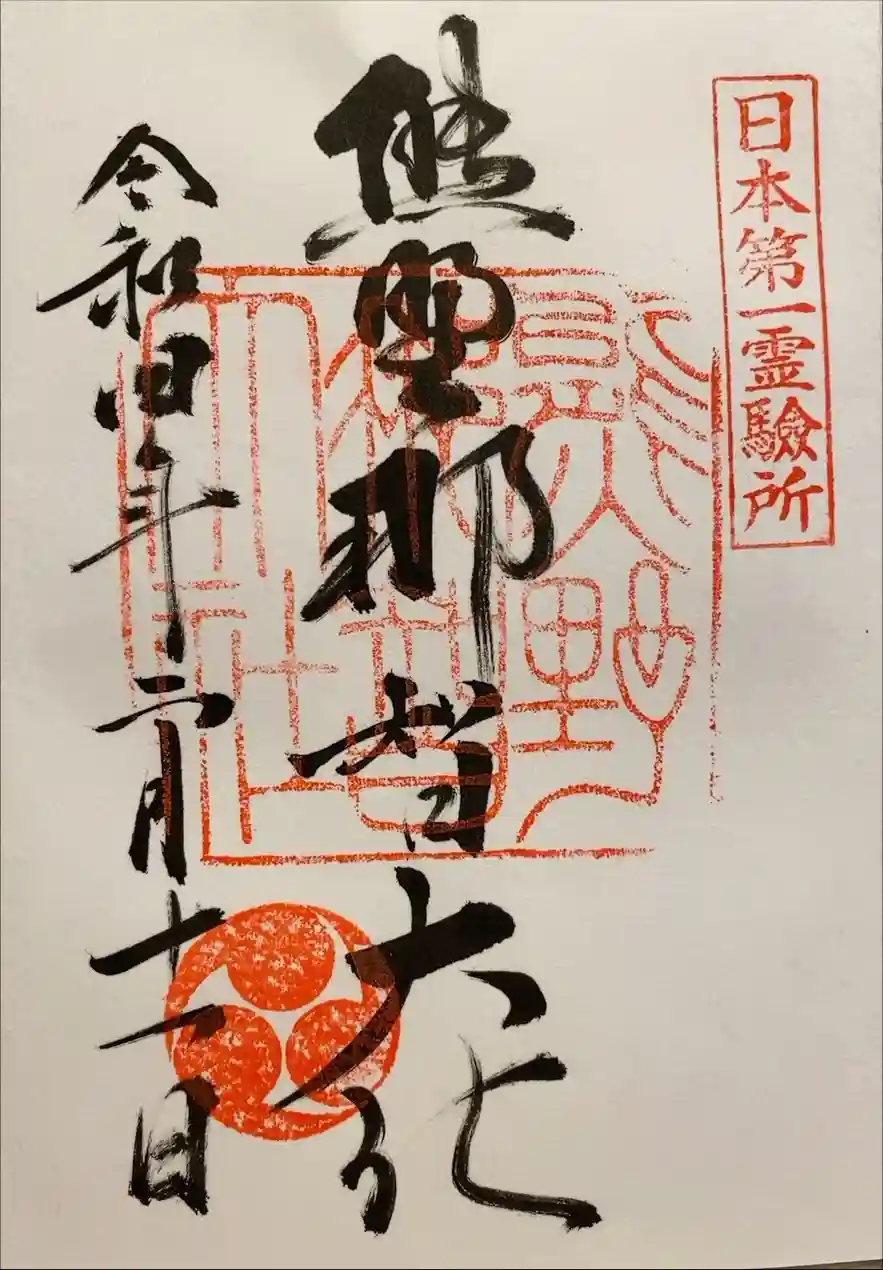 日本第一霊驗所
熊野那智大社
令和四年二月十一日
熊野
那智
大社